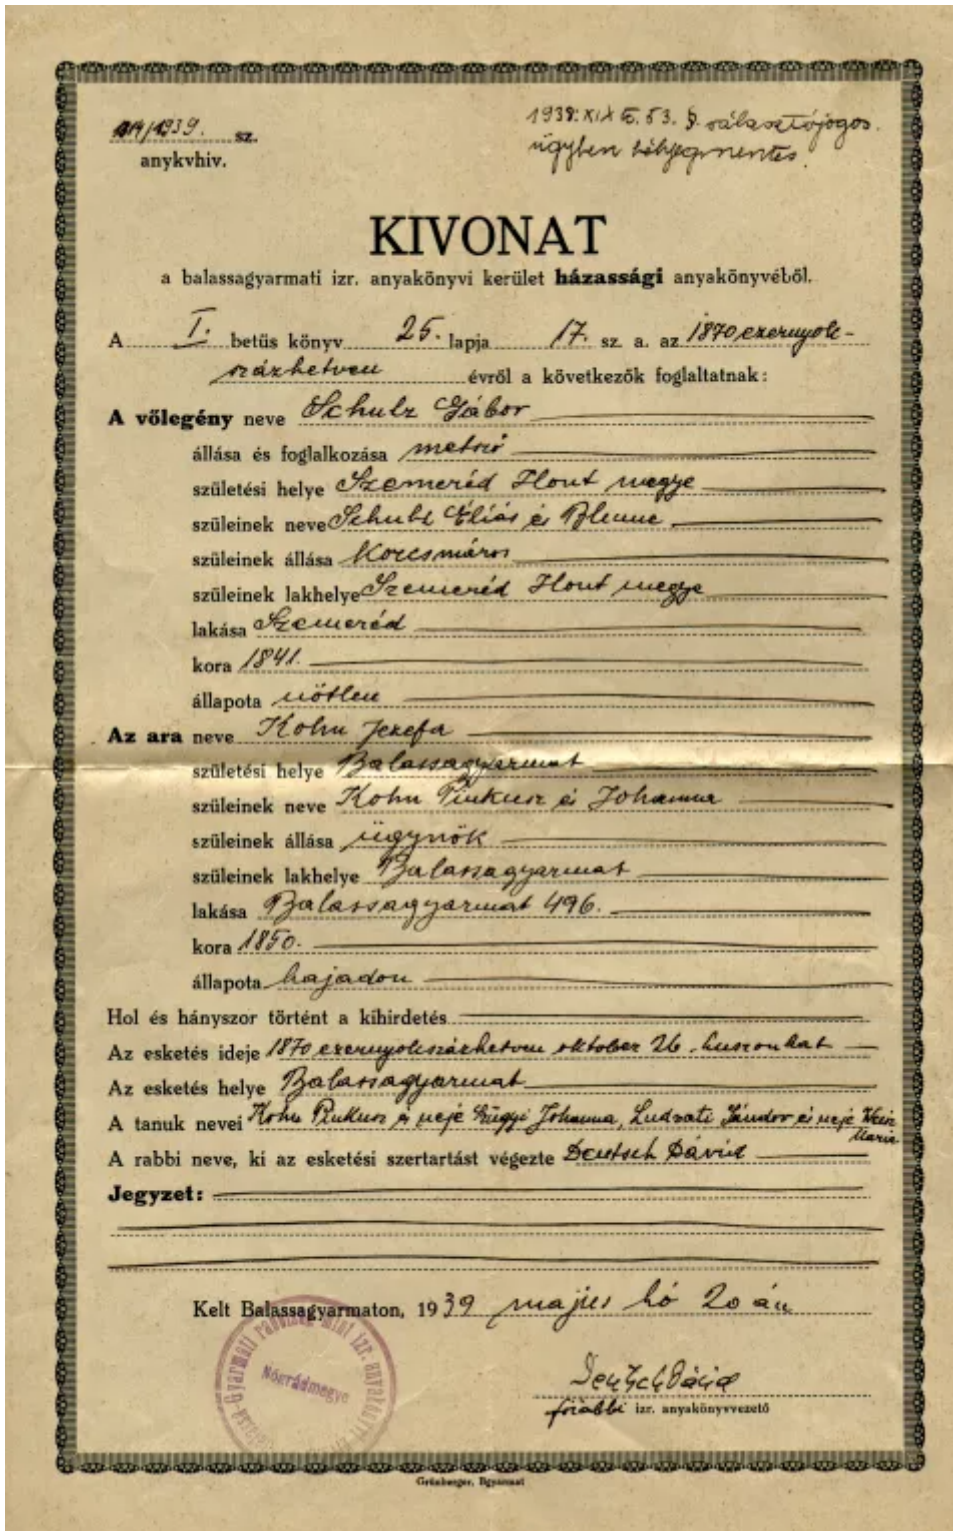 /1939. sz.
1938: XIX tc. 53. § választójogos
anykvhiv.
ügyben bélyegmentes.
KIVONAT
a balassagyarmati izr. anyakönyvi kerület házassági anyakönyvéből.
A I. betüs könyv 25. lapja 17. sz. a. az 1870 ezernyolc-
százhetven évről a következők foglaltatnak:
A vőlegény neve Schulz Gábor
állása és foglalkozása metsző
születési helye Szemeréd Hont megye
szüleinek neve Schulz Éliás és Blume
szüleinek állása Korcsmáros
szüleinek lakhelye Szemeréd Hont megye
lakása Szemeréd
kora 1841.
állapota nőtlen
Az ara neve Kohn Jozefa
születési helye Balassagyarmat
szüleinek neve Kohn Pinkusz és Johanna
szüleinek állása ügynök
szüleinek lakhelye Balassagyarmat
lakása Balassagyarmat 496.
kora 1850.
állapota hajadon
Hol és hányszor történt a kihirdetés
Az esketés ideje 1870 ezernyolcszázhetven oktober 26. huszonhat
Az esketés helye Balassagyarmat
A tanuk nevei Kohn Pinkusz és neje Johanna, Ludvati Sándor és neje Weisz
Maria
A rabbi neve, ki az esketési szertartást végezte Deutsch Dávid
Jegyzet:
Kelt Balassagyarmaton, 1939 majus hó 20 án
Nógrádmegye
Deutsch Dávid
főrabbi izr. anyakönyvvezető
Grünberger, Bgyarmat